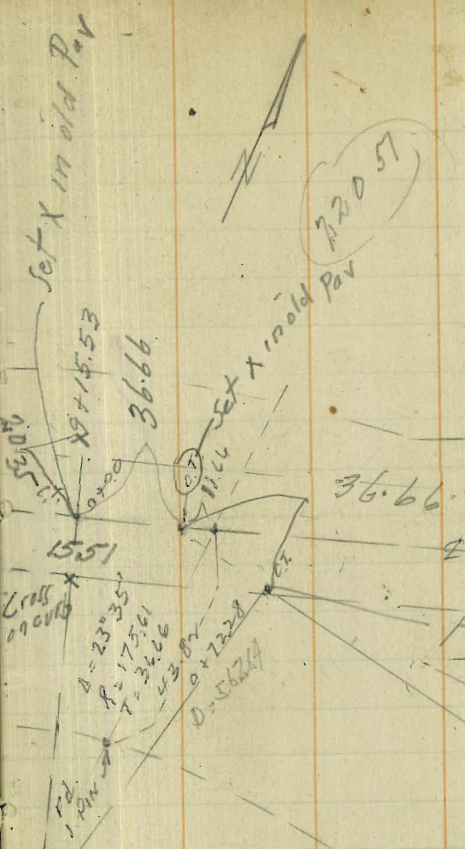 Set X in old Pav
N
22051
Set X in old Pav
x9+15.53
36.66
0+00
11.66
36.66
15.51
Cross
on curb
C.T.
Δ = 23° 35'
R = 175.61
T = 36.66
43.82
0+72.28
Fd.
I. Pin